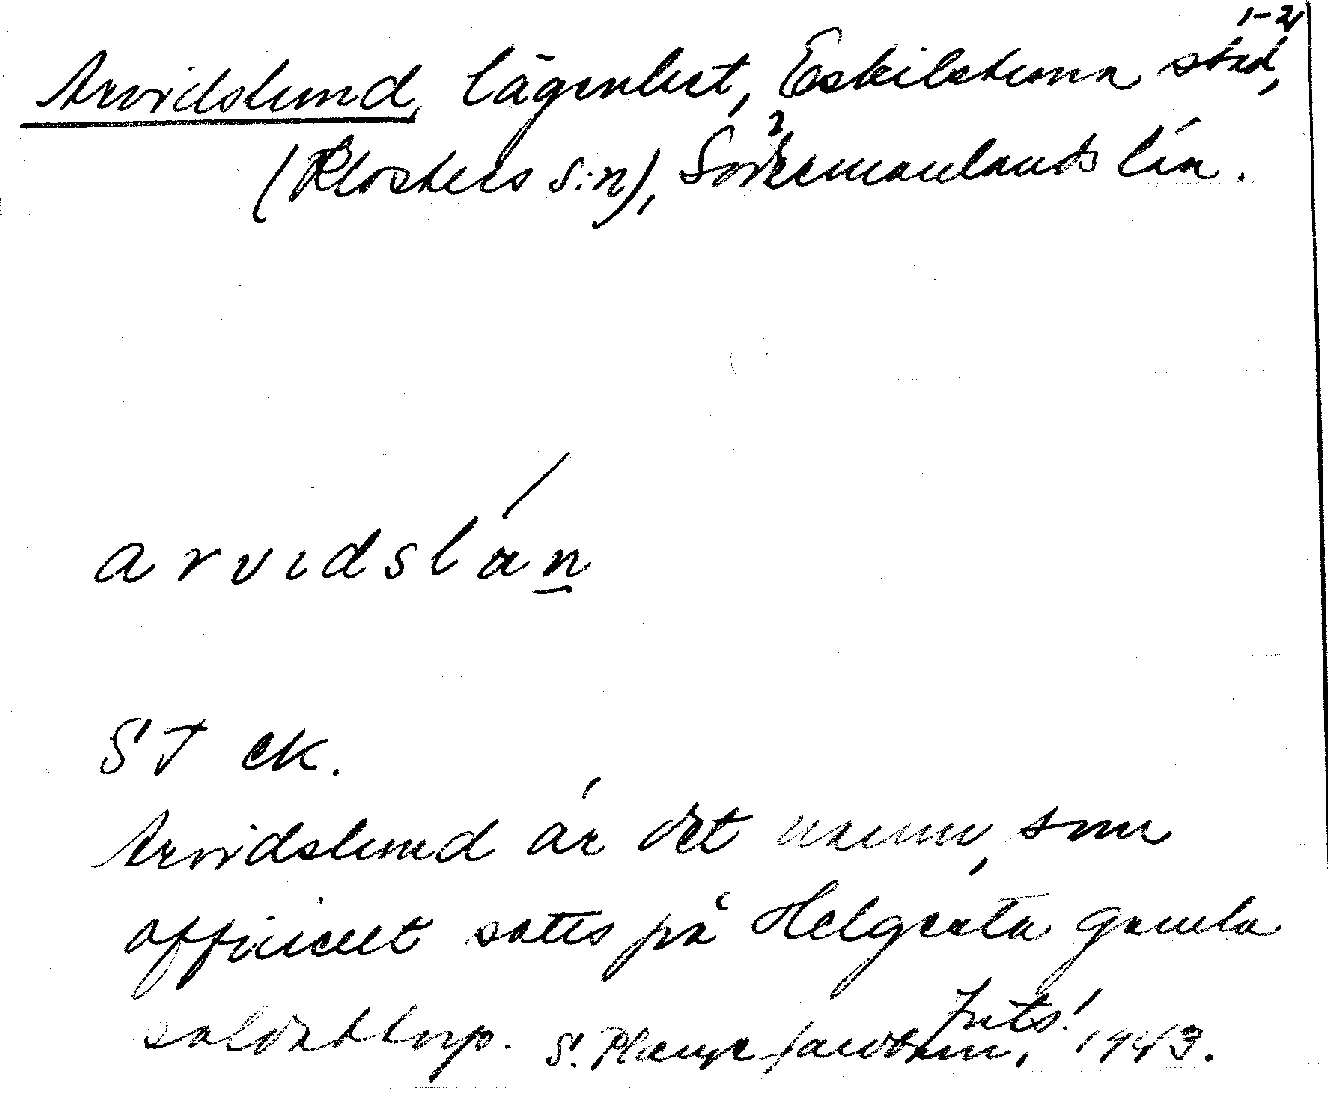 1-2
Arvidslund, lägenhet, Eskilstuna stad,
(Klosters s:n), Södermanlands län.
arvidslán
ST ek.
Arvidslund är det namn, som
officiellt sattes på Helgesta gamla
soldattorp. S. 1943.